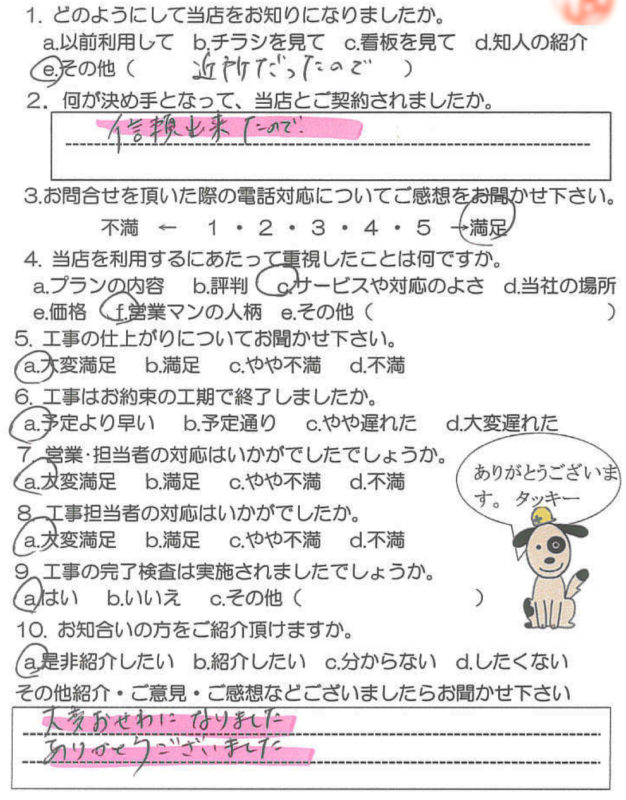 1. どのようにして当店をお知りになりましたか。
a.以前利用して b.チラシを見て c.看板を見て d.知人の紹介
e.その他（ 近所だったので ）
2. 何が決め手となって、当店とご契約されましたか。
信頼出来たので.
3.お問合せを頂いた際の電話対応についてご感想をお聞かせ下さい。
不満 ← 1・2・3・4・5 →満足
4. 当店を利用するにあたって重視したことは何ですか。
a.プランの内容 b.評判 c.サービスや対応のよさ d.当社の場所
e.価格 f.営業マンの人柄 e.その他（ ）
5. 工事の仕上がりについてお聞かせ下さい。
a.大変満足 b.満足 c.やや不満 d.不満
6. 工事はお約束の工期で終了しましたか。
a.予定より早い b.予定通り c.やや遅れた d.大変遅れた
7. 営業・担当者の対応はいかがでしたでしょうか。
a.大変満足 b.満足 c.やや不満 d.不満
ありがとうございま
す。 タッキー
8. 工事担当者の対応はいかがでしたか。
a.大変満足 b.満足 c.やや不満 d.不満
9. 工事の完了検査は実施されましたでしょうか。
a.はい b.いいえ c.その他（ ）
10. お知合いの方をご紹介頂けますか。
a.是非紹介したい b.紹介したい c.分からない d.したくない
その他紹介・ご意見・ご感想などございましたらお聞かせ下さい
大変おせわに なりました
ありがとうございました